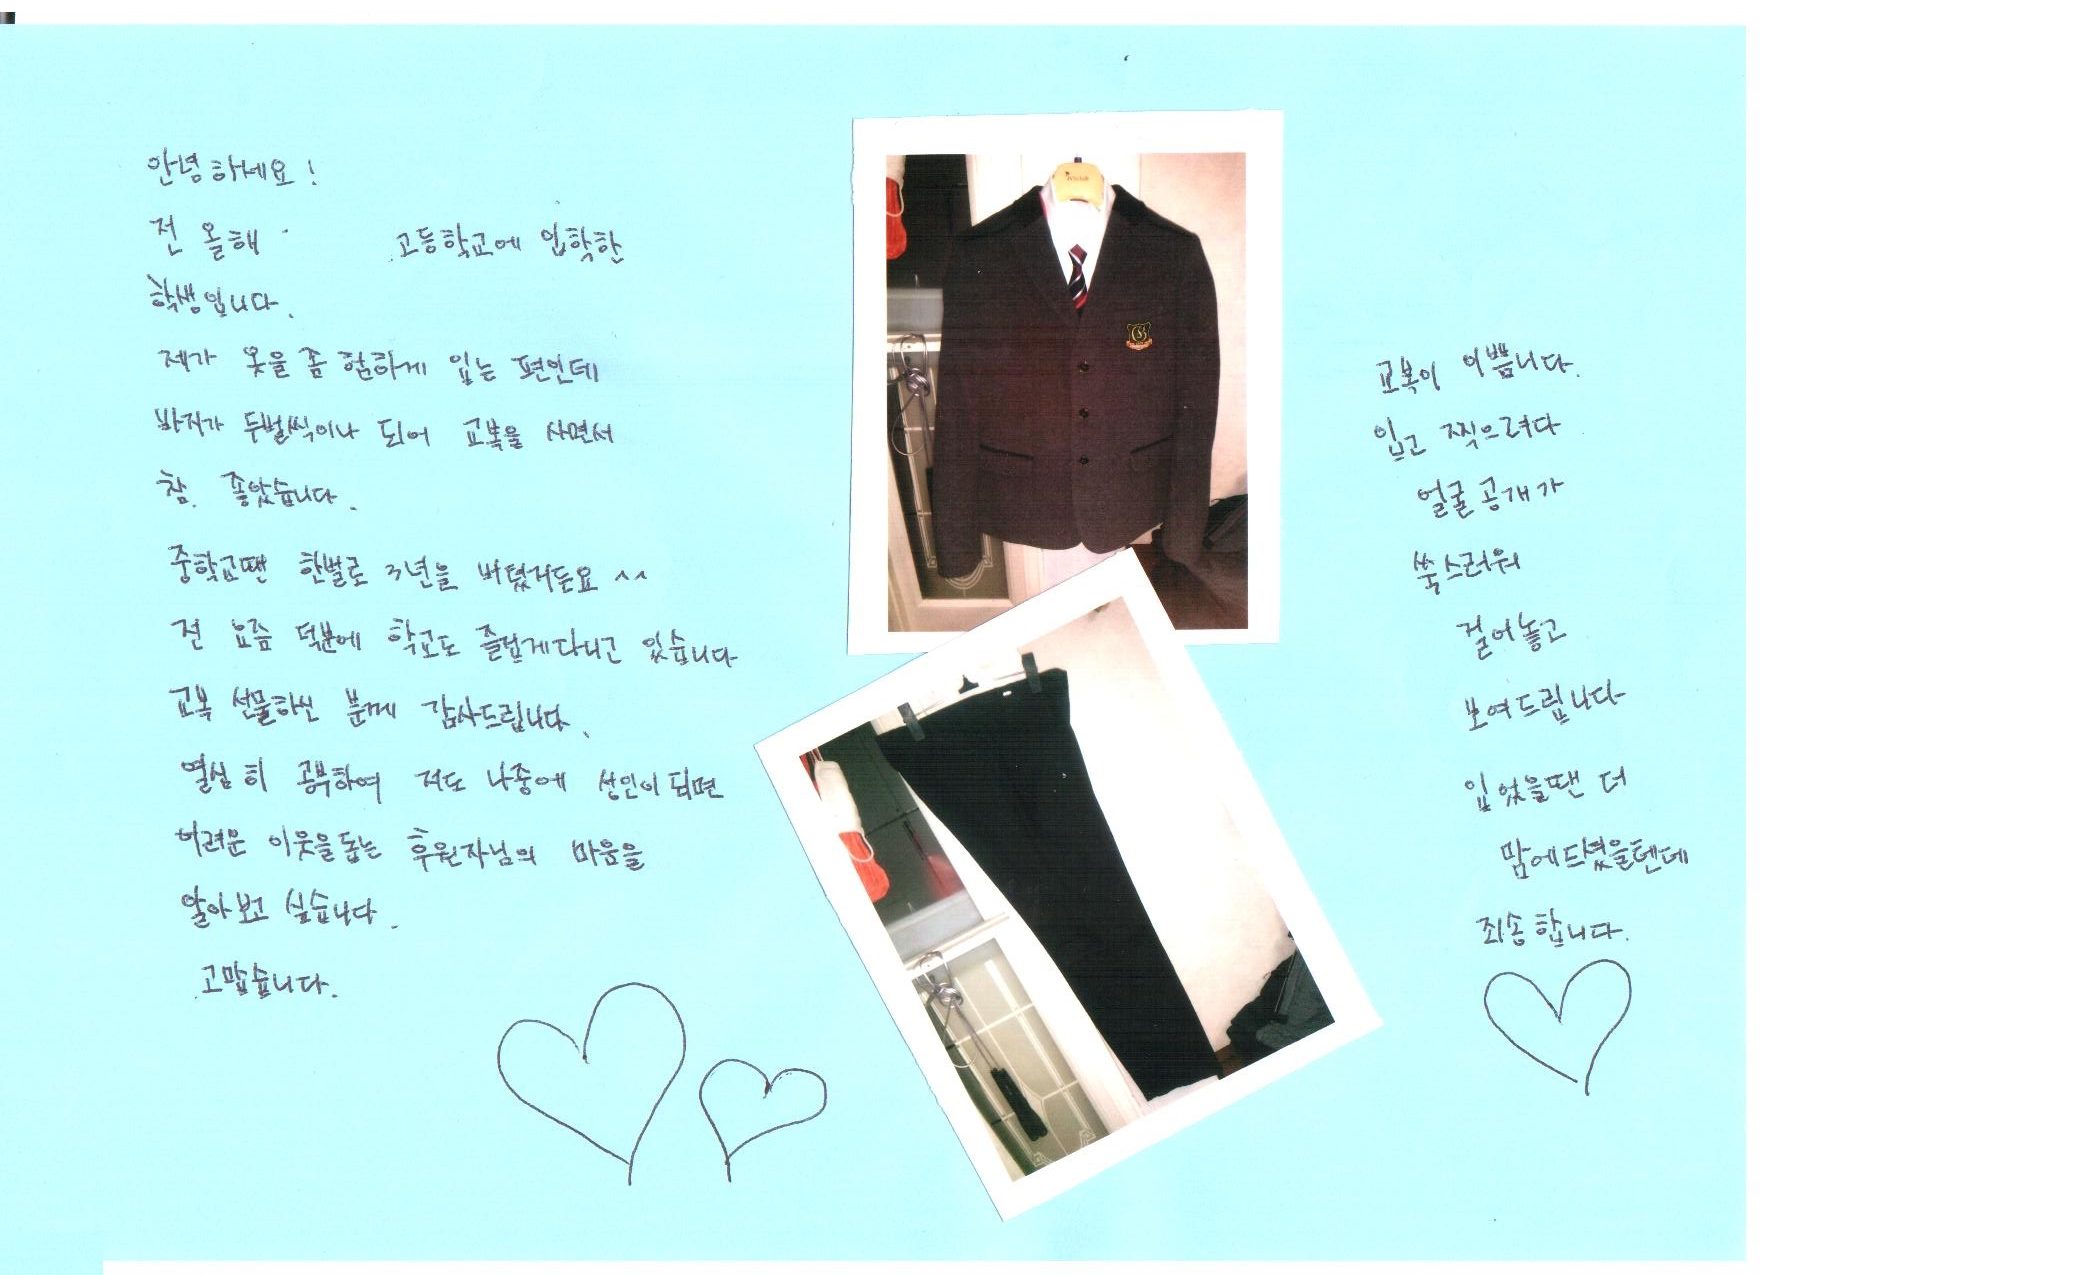 안녕하세요!
전 올해 고등학교에 입학한
학생입니다.
제가 옷을 좀 험하게 입는 편인데
바지가 두벌씩이나 되어 교복을 사면서
참. 좋았습니다.
중학교땐 한벌로 3년을 버텼거든요 ^^
전 요즘 덕분에 학교도 즐겁게다니고 있습니다
교복 선물하신 분께 감사드립니다.
열심히 공부하여 저도 나중에 성인이 되면
어려운 이웃을돕는 후원자님의 마음을
알아보고 싶습니다.
고맙습니다.
교복이 이쁩니다.
입고 찍으려다
얼굴공개가
쑥스러워
걸어놓고
보여드립니다
입었을땐 더
맘에드셨을텐데
죄송합니다.